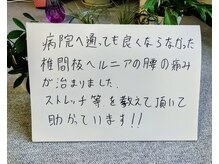 病院へ通っても良くならなかった
椎間板ヘルニアの腰の痛み
が治まりました。
ストレッチ等を教えて頂いて
助かっています!!